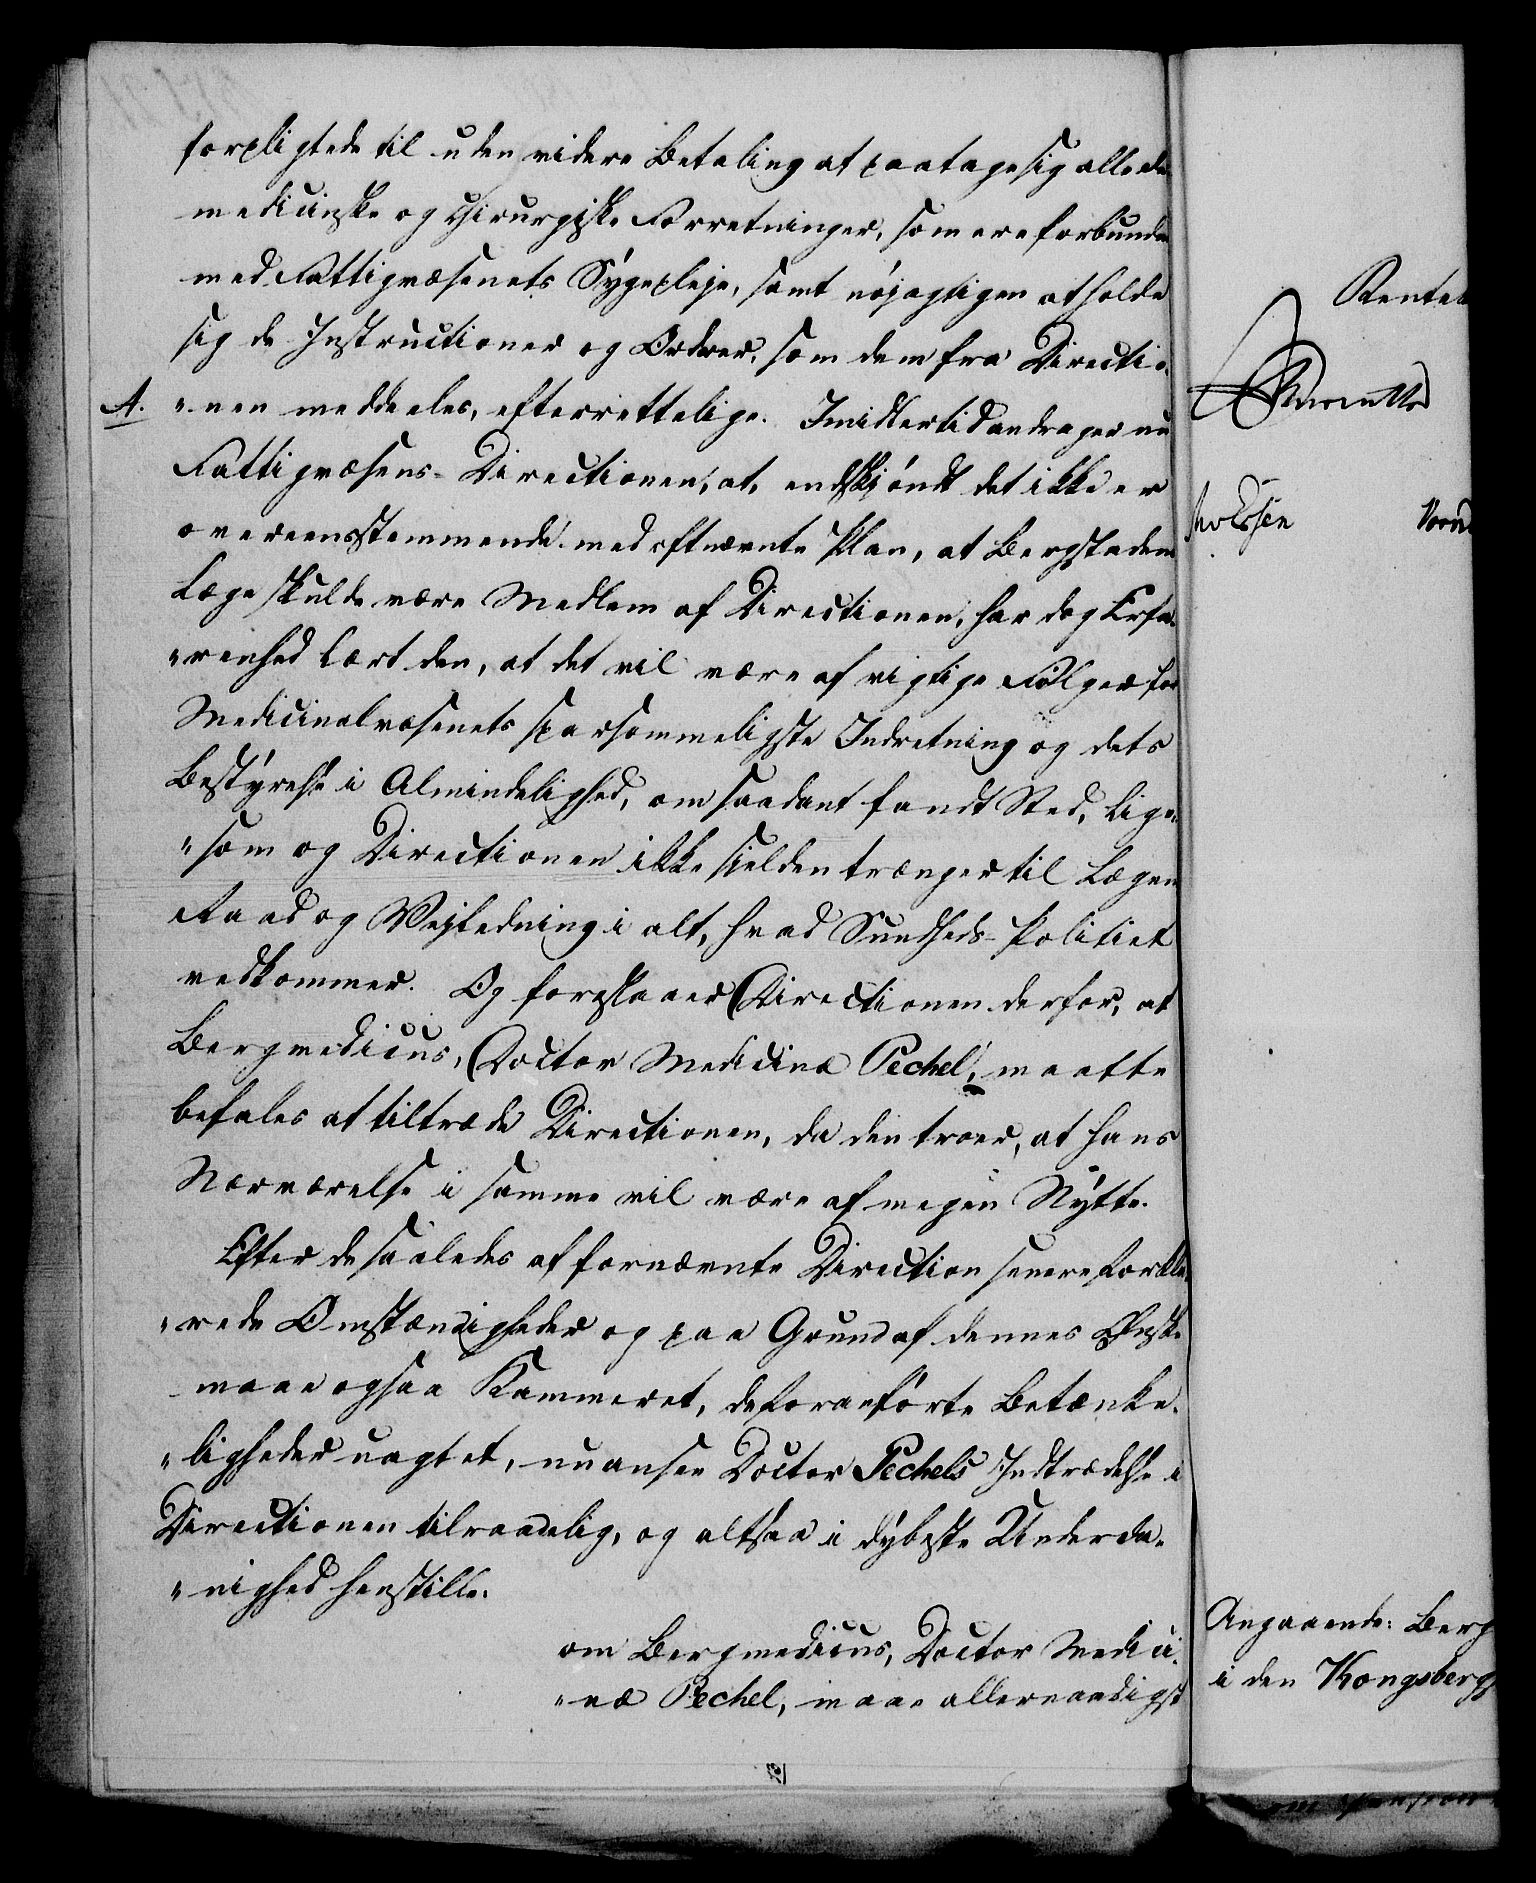 forpligtede til uden videre Betaling at paatage sig alle de
medicinske og chirurgiske Forretninger, som ere forbundne
med Fattigvæsenets Sygepleje, samt nøjagtigen at holde
sig de Instructioner og Ordrer, som dem fra Directio-
A.
"nen meddeeles, efterrettelige. Imidlertid andrager nu
Fattigvæsens-Directionen, at, endskjøndt det ikke er
overeensstemmende med oftnævnte Plan, at Bergstadens
Læge skulde være Medlem af Directionen, har dog Erfa-
"renhed lært den, at det vil være af vigtige Følger for
Medicinalvæsenets sparsommeligste Indretning og dets
Bestyrelse i Almindelighed, om saadant fandt Sted, lige-
"som og Directionen ikke sielden trænger til Lægens
Raad og Vejledning i alt, hvad Sundheds-Politiet
vedkommer. Og foreslaaer Directionen derfor, at
Bergmedicus, Doctor Medicinæ Pechel, maatte
befales at tiltræde Directionen, da den troer, at hans
Nærværelse i samme vil være af megen Nytte.
Efter de saaledes af fornævnte Direction senere forkla-
"rede Omstændigheder og paa Grund af dennes Ønske
maae ogsaa Kammeret, de foranførte Betænke-
"ligheder uagtet, nu ansee Doctor Pechels Indtrædelse i
Directionen tilraadelig, og altsaa i dybeste Underda-
"nighed henstille:
om Bergmedicus, Doctor Medici-
"næ Pechel, maae allernaadigst
Rente
Angaaende: Berg
i den Kongsberg